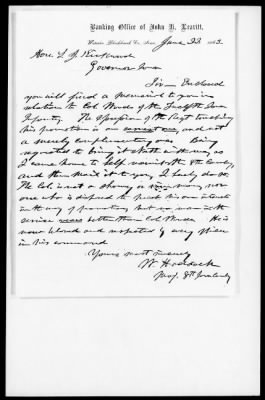 Banking Office of John H. Leavitt,
Waterloo, Blackhawk Co., Iowa, June 23 1863.
Hon. S. J. Kirkwood
Governor Iowa
Sir— Enclosed
you will find a memorial to you in
relation to Col Woods of the Twelfth Iowa
Infantry. The expression of the Regt touching
his promotion is an earnest one, and not
a merely complimentary one. Being
requested to bring it North with me, as
I came home to help recruit the 8th Cavalry,
and then mail it to you, I hereby do so.
The Col is not a showy or noisy man, nor
one who is disposed to push his own interests
in the way of promotion, but no man in the
service merits better than Col Woods. He is
now beloved and respected by every officer
in his command
Yours most truly
8th Cavalry